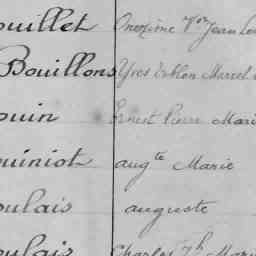 ouillet Onezime Vor Jean Lou
Bouillons Yves Marcel
ouin Ernest Pierre Mari
uiniot augte Marie
oulais auguste
oulais Charles Th Marie